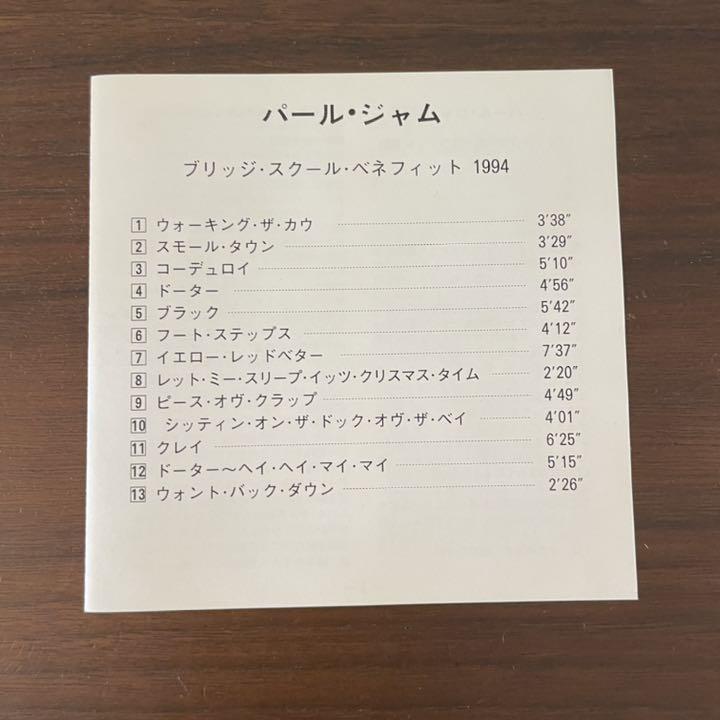 パール・ジャム
ブリッジ・スクール・ベネフィット 1994
1 ウォーキング・ザ・カウ 3'38"
2 スモール・タウン 3'29"
3 コーデュロイ 5'10"
4 ドーター 4'56"
5 ブラック 5'42"
6 フート・ステップス 4'12"
7 イエロー・レッドベター 7'37"
8 レット・ミー・スリープ・イッツ・クリスマス・タイム 2'20"
9 ピース・オヴ・クラップ 4'49"
10 シッティン・オン・ザ・ドック・オヴ・ザ・ベイ 4'01"
11 クレイ 6'25"
12 ドーター〜ヘイ・ヘイ・マイ・マイ 5'15"
13 ウォント・バック・ダウン 2'26"